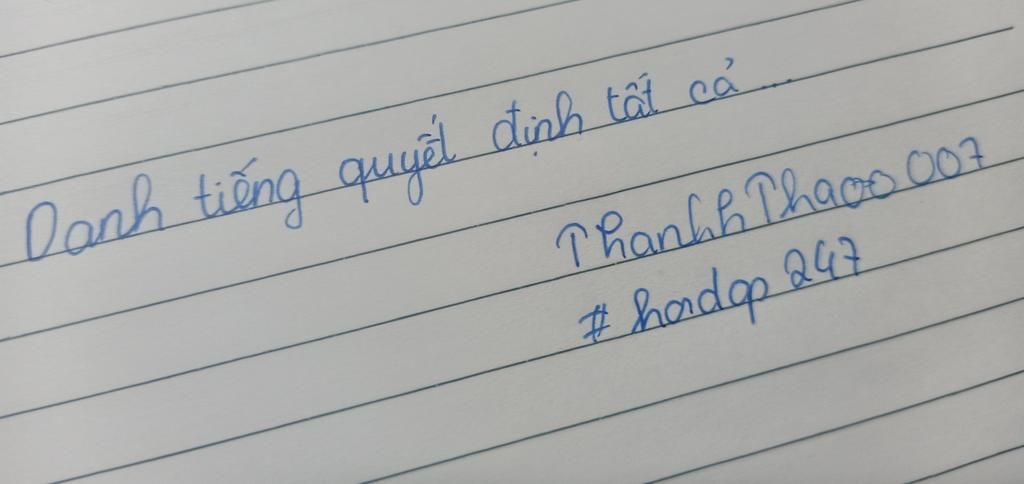 Danh tiếng quyết định tất cả...
ThanhhThaoo007
#hoidap247